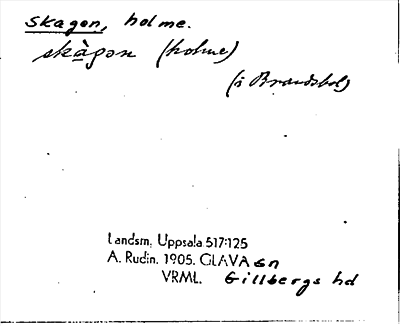 Skagen, holme.
skàgən (holme)
(i Brandsbol)
Landsm. Uppsala 517:125
A. Rudin. 1905. GLAVA sn
VRML. Gillbergs hd